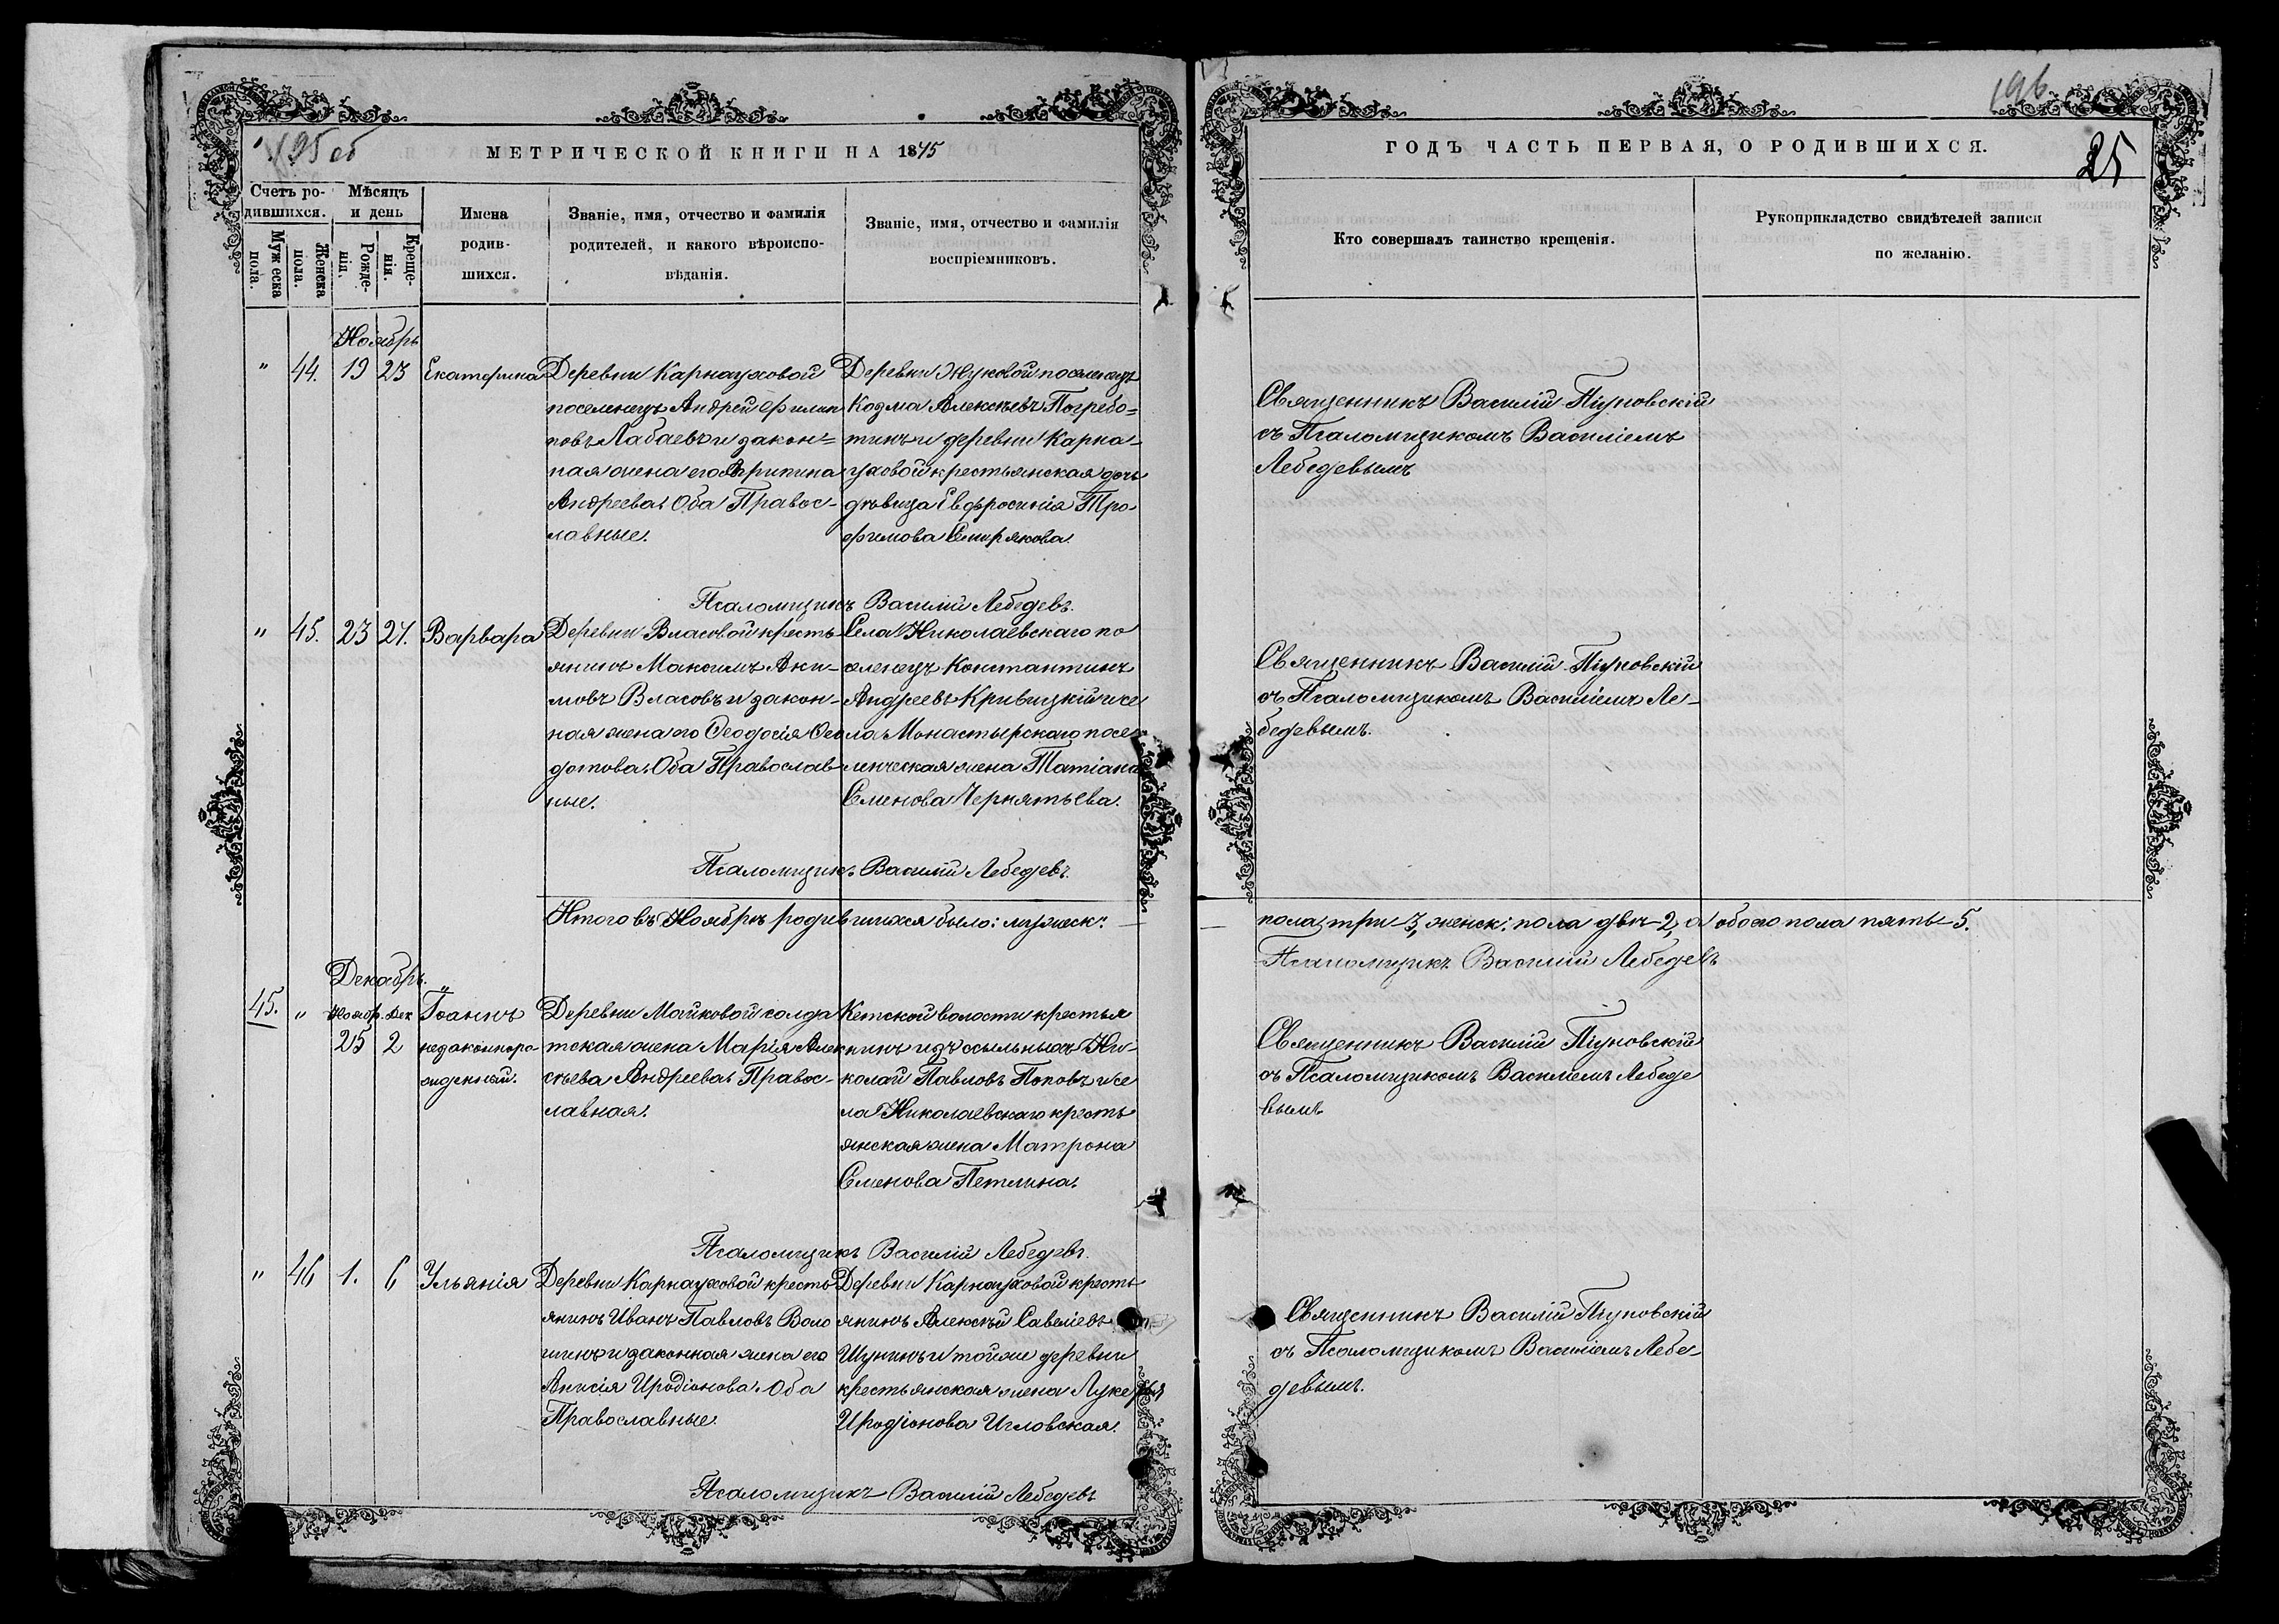 195 об
МЕТРИЧЕСКОЙ КНИГИ НА 1875
Счетъ ро-
дившихся.
Мѣсяцъ
и день
Муж еска
пола.
Женска
пола.
Рожде-
нія.
Креще-
нія.
Имена
родив-
шихся.
Званіе, имя, отчество и фамилія
родителей, и какого вѣроиспо-
вѣданія.
Званіе, имя, отчество и фамилія
воспріемниковъ.
Ноябрь
" 44. 19 23 Екатерина
Деревни Карнауховой
поселенецъ Андрей Филип
повъ Лабаевъ и закон=
ная жена его Агрипина
Андреева. Оба Правос-
лавные.
Деревни Жуковой поселенецъ
Козма Алексѣевъ Погребо=
тинъ и деревни Карна-
уховой крестьянская дочь
дѣвица Евфросинія Тро-
фимова Семирякова.
Псаломщикъ Василій Лебедевъ.
" 45. 23 27. Варвара
Деревни Власовой кресть
янинъ Максимъ Аки-
мовъ Власовъ и закон-
ная жена его Ѳеодосія Ѳео
дотова. Оба Православ
ные.
Села Николаевскаго по
селенецъ Константинъ
Андреевъ Кривицкій и се
ла Монастырскаго посе
ленческая жена Татіана
Семенова Чернятьева.
Псаломщикъ Василій Лебедевъ.
Итого въ Ноябрѣ родившихся было: мужеск:
Декабрь.
45. " Ноябр. Дек Іоаннъ
25 2 незаконноро-
жденный.
Деревни Майковой солда
тская жена Марія Алек
сѣева Андреева. Правос-
лавная.
Кетской волости крестья
нинъ изъ ссыльныхъ Ни-
колай Павловъ Поповъ и се
ла Николаевскаго кресть
янская жена Матрона
Семенова Петлина.
Псаломщикъ Василій Лебедевъ.
" 46 1. 6 Ульянія
Деревни Карнауховой кресть
янинъ Иванъ Павловъ Воло
шинъ и законная жена его
Анисія Иродіонова. Оба
Православные.
Деревни Карнауховой кресть
янинъ Алексѣй Савеліевъ
Шунинъ и той же деревни
крестьянская жена Лукерья
Иродіонова Игловская.
Псаломщикъ Василій Лебедевъ
196
25
ГОДЪ ЧАСТЬ ПЕРВАЯ, О РОДИВШИХСЯ.
Кто совершалъ таинство крещенія.
Рукоприкладство свидѣтелей записи
по желанію.
Священникъ Василій Піуновскій
съ Псаломщикомъ Василіемъ
Лебедевымъ
Священникъ Василій Піуновскій
съ Псаломщикомъ Василіемъ Ле-
бедевымъ.
пола три-3, женск: пола двѣ-2, а обоего пола пять-5.
Псаломщикъ Василій Лебедевъ
Священникъ Василій Піуновскій
съ Псаломщикомъ Василіемъ Лебеде
вымъ.
Священникъ Василій Піуновскій
съ Псаломщикомъ Василіемъ Лебе-
девымъ.